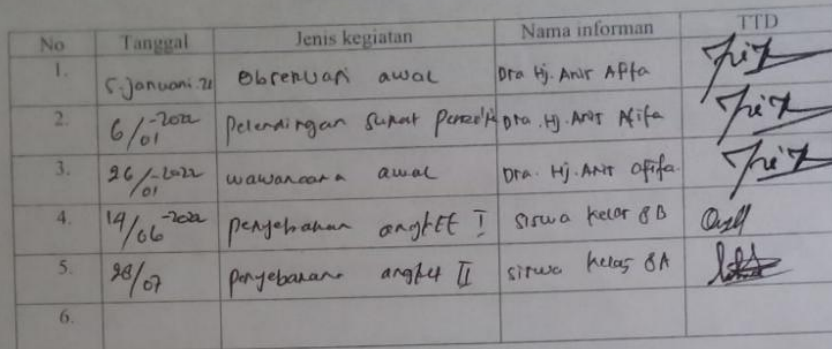 No Tanggal Jenis kegiatan Nama informan TTD
1. 5 januari 22 Obserwari awal Dra Hj. Anis Afifa
2. 6/01 -2022 surat Dra. Hj. Anis Afifa
3. 26/01 -2022 wawancara awal Dra. Hj. Anis Afifa.
4. 14/06 -2022 penyebaran angket I siswa kelas 8B
5. 28/07 penyebaran angket II siswa kelas 8A
6.